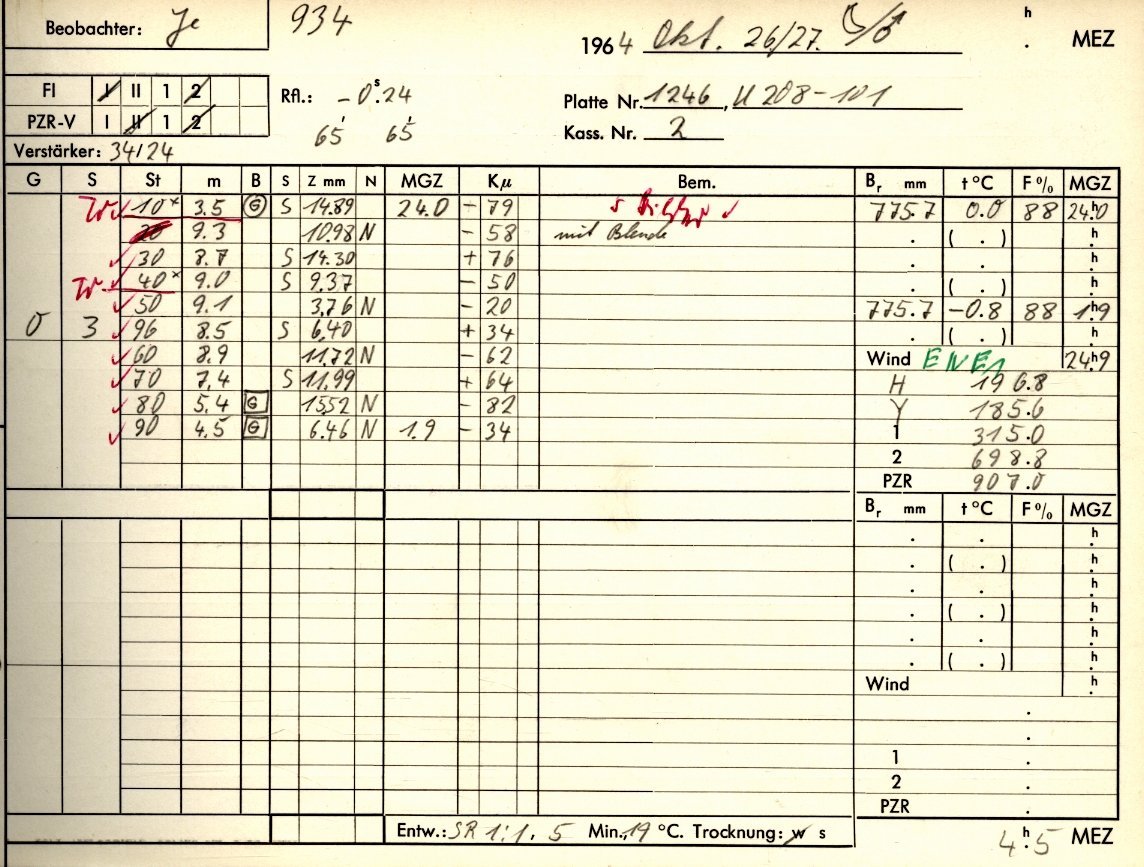 Beobachter: Je 934 1964 Okt. 26/27. ☾/♂ h . MEZ
FI I II 1 2 Rfl.: -0ˢ.24 Platte Nr. 1246, U 208-101
PZR-V I II 1 2 65' 65' Kass. Nr. 2
Verstärker: 34/24
G S St m B S Z mm N MGZ Kμ Bem. Br mm t °C F % MGZ
10× 3.5 G S 14.89 24.0 - 79 775.7 0.0 88 24ʰ.0
9.3 10.98 N - 58 mit Blende . ( . ) h.
30 8.7 S 14.30 + 76 . . h.
40× 9.0 S 9.37 - 50 . ( . ) h.
50 9.1 3.76 N - 20 775.7 -0.8 88 1ʰ.9
0 3 96 8.5 S 6.40 + 34 . ( . ) h.
60 8.9 11.72 N - 62 Wind ENE1 24ʰ.9
70 7.4 S 11.99 + 64 H 196.8
80 5.4 G 15.52 N - 82 Y 185.6
90 4.5 G 6.46 N 1.9 - 34 1 315.0
2 698.8
PZR 907.0
Br mm t °C F % MGZ
. . h.
. ( . ) h.
. . h.
. ( . ) h.
. . h.
. ( . ) h.
Wind h.
.
.
1 .
2 .
PZR .
Entw.: SR 1:1. 5 Min., 19 °C. Trocknung: w s
4ʰ.5 MEZ